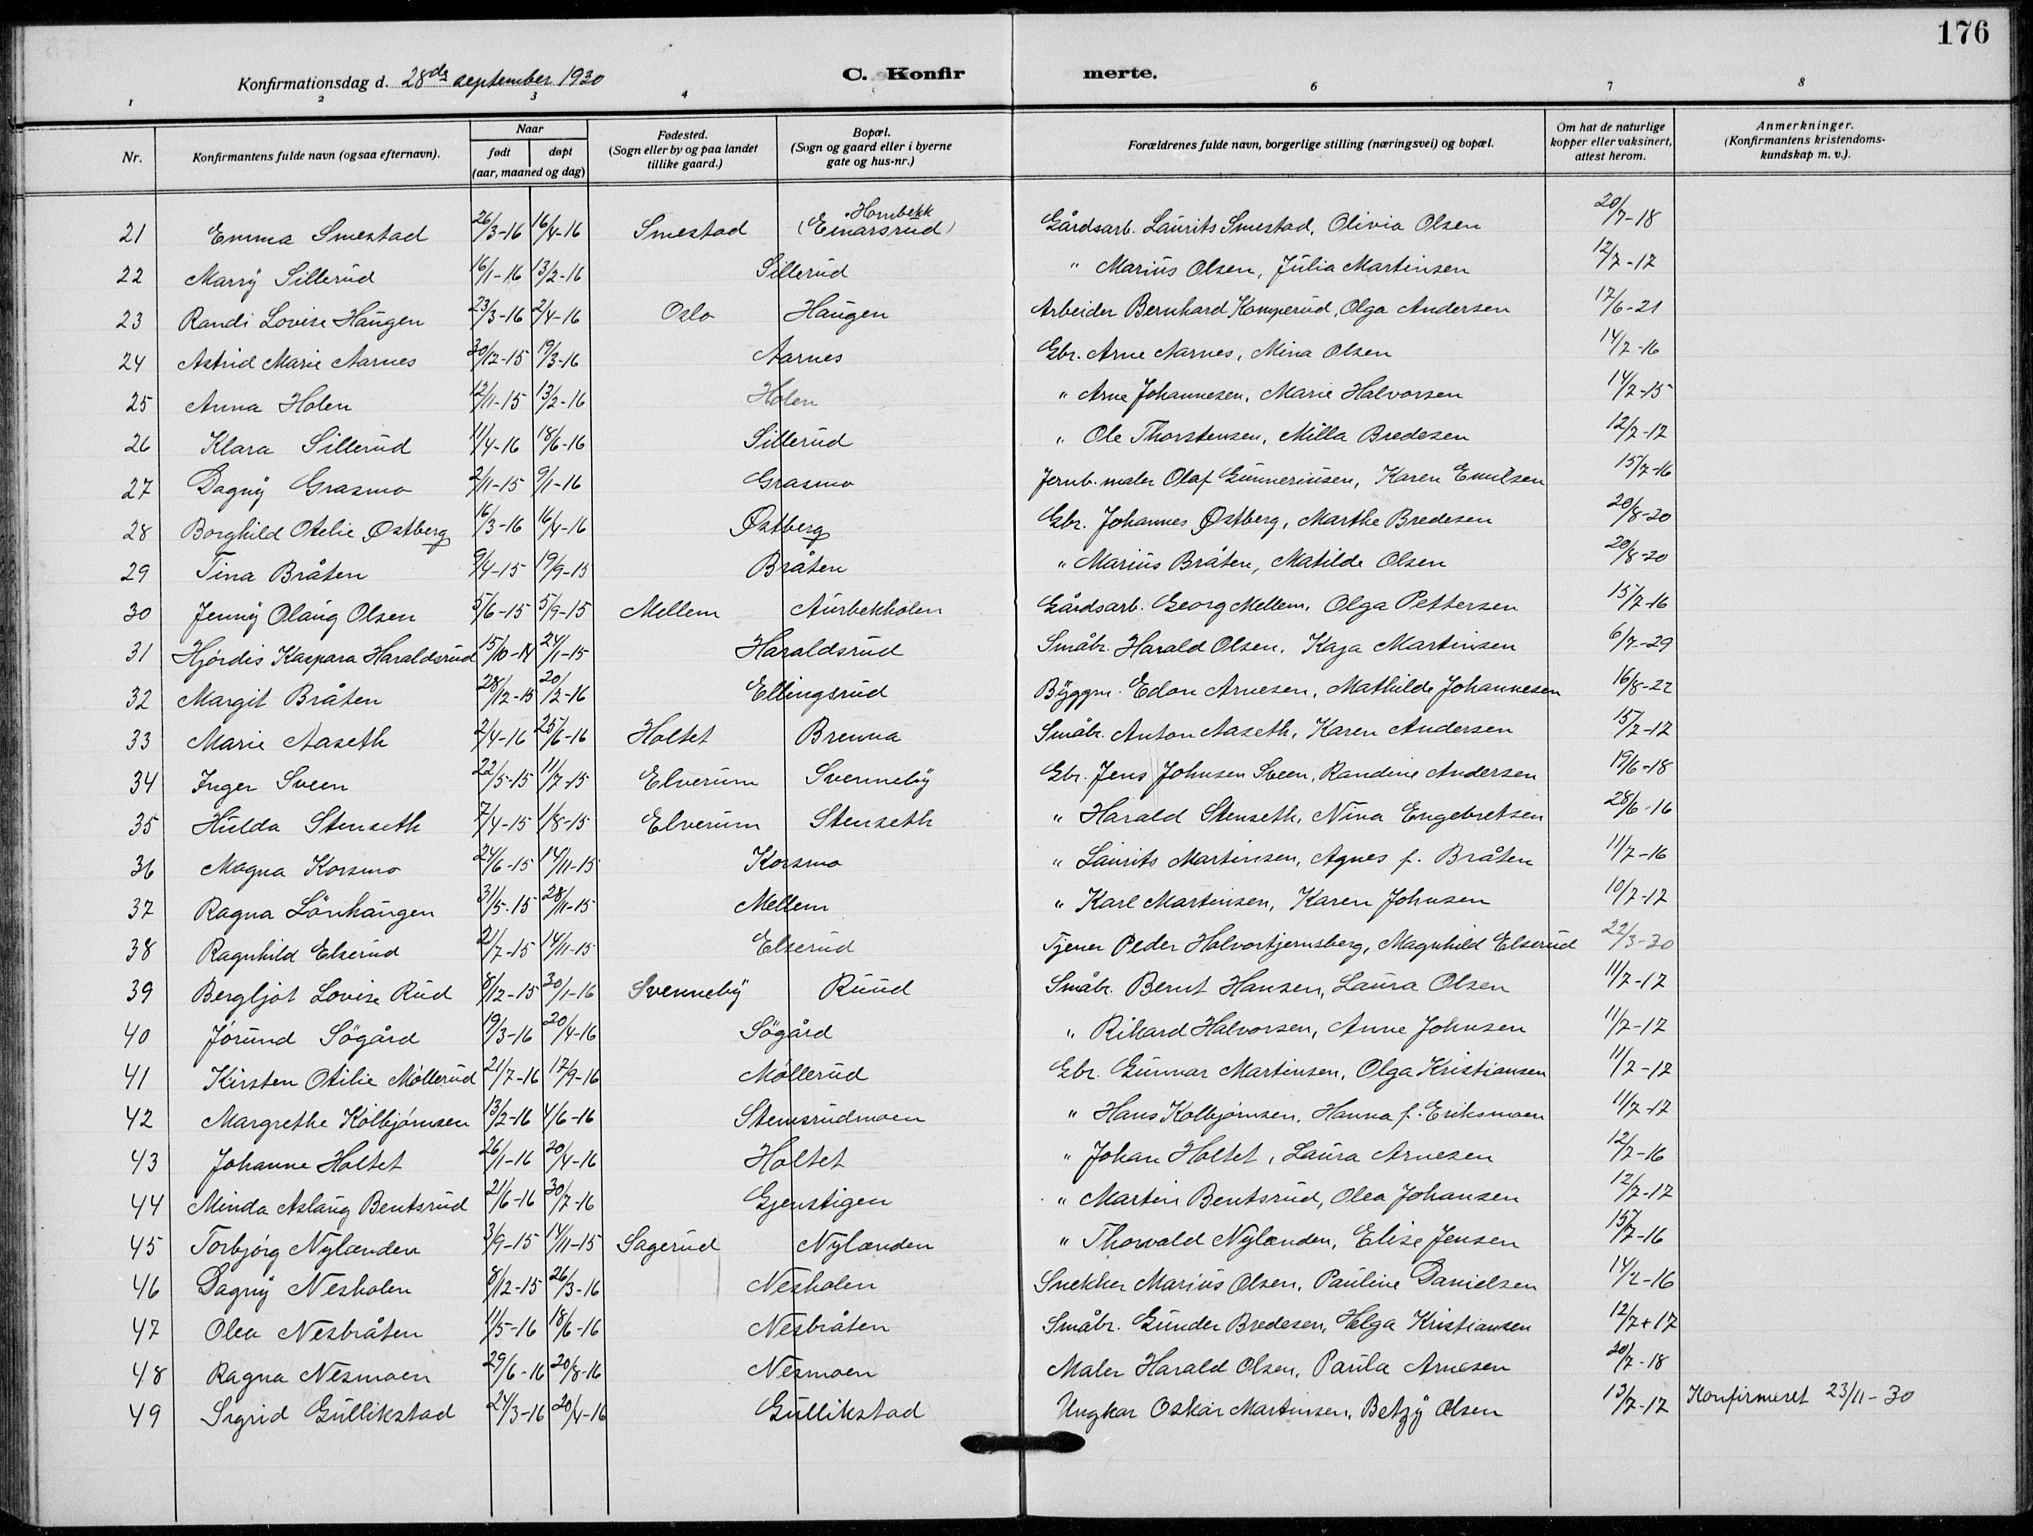 176
Konfirmationsdag d. 28de september 1930 C. Konfir merte.
1 2 3 4 6 7 8
Nr. Konfirmantens fulde navn (ogsaa efternavn). Naar født døpt (aar, maaned og dag) Fødested. (Sogn eller by og paa landet tillike gaard.) Bopæl. (Sogn og gaard eller i byerne gate og hus-nr.) Forældrenes fulde navn, borgerlige stilling (næringsvei) og bopæl. Om hat de naturlige kopper eller vaksinert, attest herom. Anmerkninger. (Konfirmantens kristendoms-kundskap m. v.).
Hornbekk
21 Emma Smestad 26/3-16 16/4-16 Smestad (Einarsrud) Gårdsarb. Laurits Smestad, Olivia Olsen 20/7-18
22 Marry Sillerud 16/1-16 13/2-16 Sillerud " Marius Olsen, Julia Martinsen 12/7-17
23 Randi Lovise Haugen 23/3-16 2/4-16 Oslo Haugen Arbeider Bernhard Komperud, Olga Andersen 17/6-21
24 Astrid Marie Aarnes 30/12-15 19/3-16 Aarnes Gbr. Arne Aarnes, Mina Olsen 14/7-16
25 Anna Holen 12/11-15 13/2-16 Holen " Arne Johannesen, Marie Halvorsen 14/7-15
26 Klara Sillerud 11/4-16 18/6-16 Sillerud " Ole Thorstensen, Milla Bredesen 12/7-17
27 Dagny Grasmo 2/11-15 9/1-16 Grasmo Jernb. maler Olaf Gunneriusen, Karen Emilsen 15/7-16
28 Borghild Otelie Østberg 16/3-16 16/4-16 Østberg Gbr. Johannes Østberg, Marthe Bredesen 20/8-20
29 Tina Bråten 9/4-15 19/9-15 Bråten " Marius Bråten, Matilde Olsen 20/8-20
30 Jenny Olaug Olsen 5/6-15 5/9-15 Mellem Aurbekkolen Gårdsarb. Georg Mellem, Olga Pettersen 15/7-16
31 Hjørdis Kaspara Haraldsrud 15/10-14 24/1-15 Haraldsrud Småbr. Harald Olsen, Kaja Martinsen 6/7-29
32 Margit Bråten 28/12-15 20/2-16 Ellingsrud Byggm. Edon Arnesen, Mathilde Johannesen 16/8-22
33 Marie Aaseth 2/4-16 25/6-16 Holtet Brenna Småbr. Anton Aaseth, Karen Andersen 15/7-17
34 Inger Sveen 22/5-15 11/7-15 Elverum Svenneby Gbr. Jens Johnsen Sveen, Randine Andersen 19/6-18
35 Hulda Stenseth 7/4-15 1/8-15 Elverum Stenseth " Harald Stenseth, Nina Engebretsen 28/6-16
36 Magna Korsmo 24/6-15 14/11-15 Korsmo " Laurits Martinsen, Agnes f. Bråten 11/7-16
37 Ragna Lönhaugen 31/5-15 28/11-15 Mellem " Karl Martinsen, Karen Johnsen 10/7-17
38 Ragnhild Elserud 21/7-15 14/11-15 Elserud Tjener Peder Halvortjernsberg, Magnhild Elserud 22/3-30
39 Bergljot Lovise Rud 8/12-15 30/1-16 Svenneby Ruud Småbr. Bernt Hansen, Laura Olsen 11/7-17
40 Jørund Søgård 19/3-16 20/4-16 Søgård " Rikard Halvorsen, Anne Johnsen 11/7-17
41 Kirsten Otilie Møllerud 21/7-16 17/9-16 Møllerud Gbr. Gunnar Martinsen, Olga Kristiansen 11/7-17
42 Margrethe Kolbjørnsen 13/2-16 4/6-16 Stemsrudmoen " Hans Kolbjørnsen, Hanna f. Eriksmoen 11/7-17
43 Johanne Holtet 26/1-16 20/4-16 Holtet " Johan Holtet, Laura Arnesen 12/7-16
44 Minda Aslaug Bentsrud 21/6-16 30/7-16 Gjenstigen " Martin Bentsrud, Olea Johansen 12/7-17
45 Torbjørg Nylænden 3/9-15 14/11-15 Sagerud Nylænden " Thorvald Nylænden, Elise Jensen 15/7-16
46 Dagny Nesholen 8/12-15 26/3-16 Nesholen Snekker Marius Olsen, Pauline Danielsen 14/7-16
47 Olea Nesbråten 11/5-16 18/6-16 Nesbråten Småbr. Gunder Bredesen, Helga Kristiansen 12/7-17
48 Ragna Nesmoen 29/6-16 20/8-16 Nesmoen Maler Harald Olsen, Paula Arnesen 20/7-18
49 Sigrid Gullikstad 24/3-16 20/4-16 Gullikstad Ungkar Oskar Martinsen, Betzy Olsen 13/7-17 Konfirmeret 23/11-30